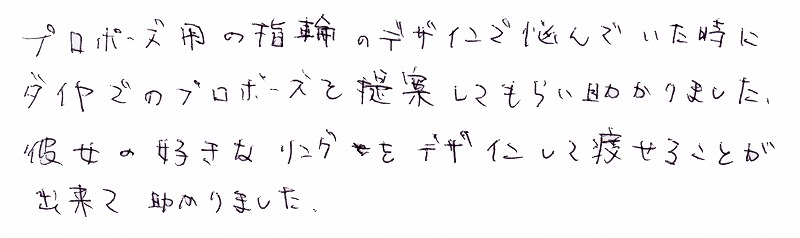 プロポーズ用の指輪のデザインで悩んでいた時に
ダイヤでのプロポーズを提案してもらい助かりました.
彼女の好きなリングをデザインして痩せることが
出来て助かりました.